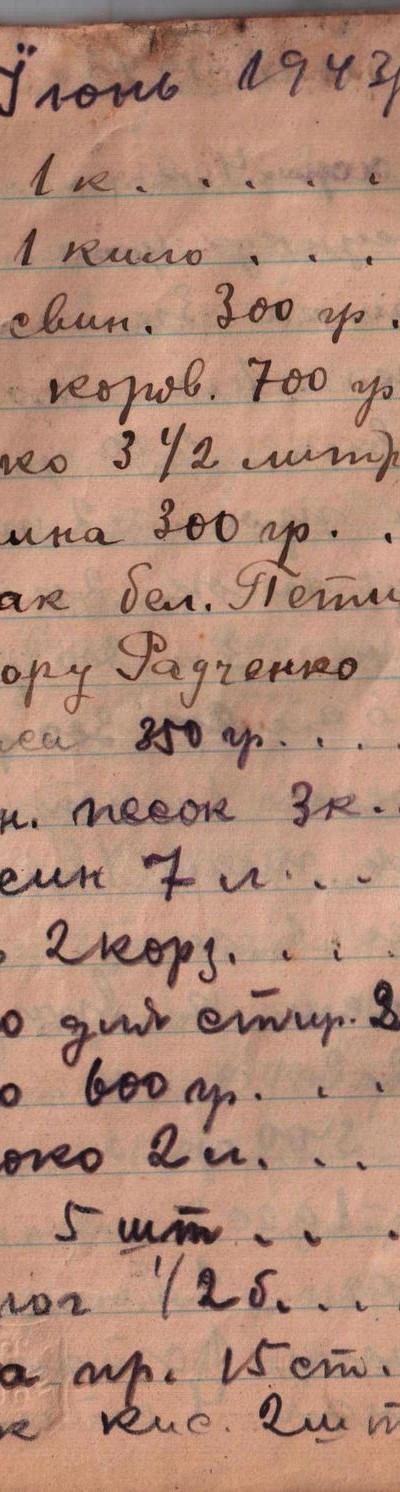 Їюнь 1943
1 к. . . . .
1 кило . . .
свин. 300 гр.
коров. 700 гр
ко 3 1/2 литр
ина 300 гр. .
ак бел. Пети
ору Радченко
350 гр. . . .
н. песок 3к. .
син 7 л. . .
2 корз. . . .
о для стир. 2
о 600 гр. . .
око 2 л. . .
5 шт . . .
лог 1/2 б. . . .
а пр. 15 ст.
к кис. 2шт